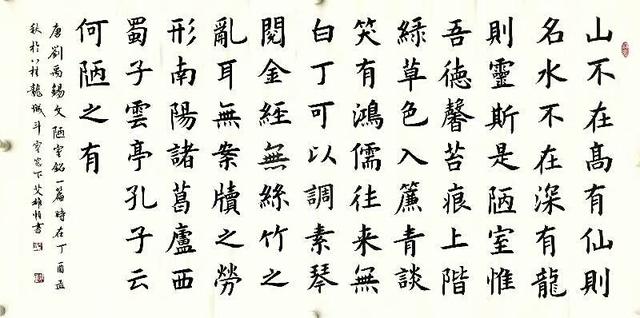 山不在髙有仙則
名水不在深有龍
則靈斯是陋室惟
吾徳馨苔痕上階
綠草色入簾青談
笑有鴻儒往来無
白丁可以調素琴
閱金經無絲竹之
亂耳無案牘之勞
形南陽諸葛廬西
蜀子雲亭孔子云
何陋之有
唐劉禹錫文陋室銘一篇時在丁酉孟
秋於八桂龍城斗室窗下書